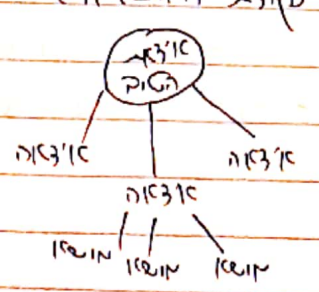 אידאת
הטוב
אידאה אידאה
אידאה
מושא מושא מושא